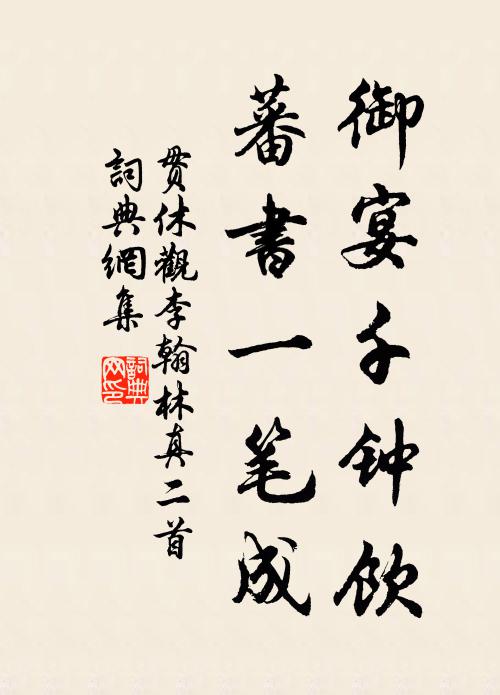 御宴千钟饮
蕃書一笔成
贯休觀李翰林真二首
詞典網集
詞典網印